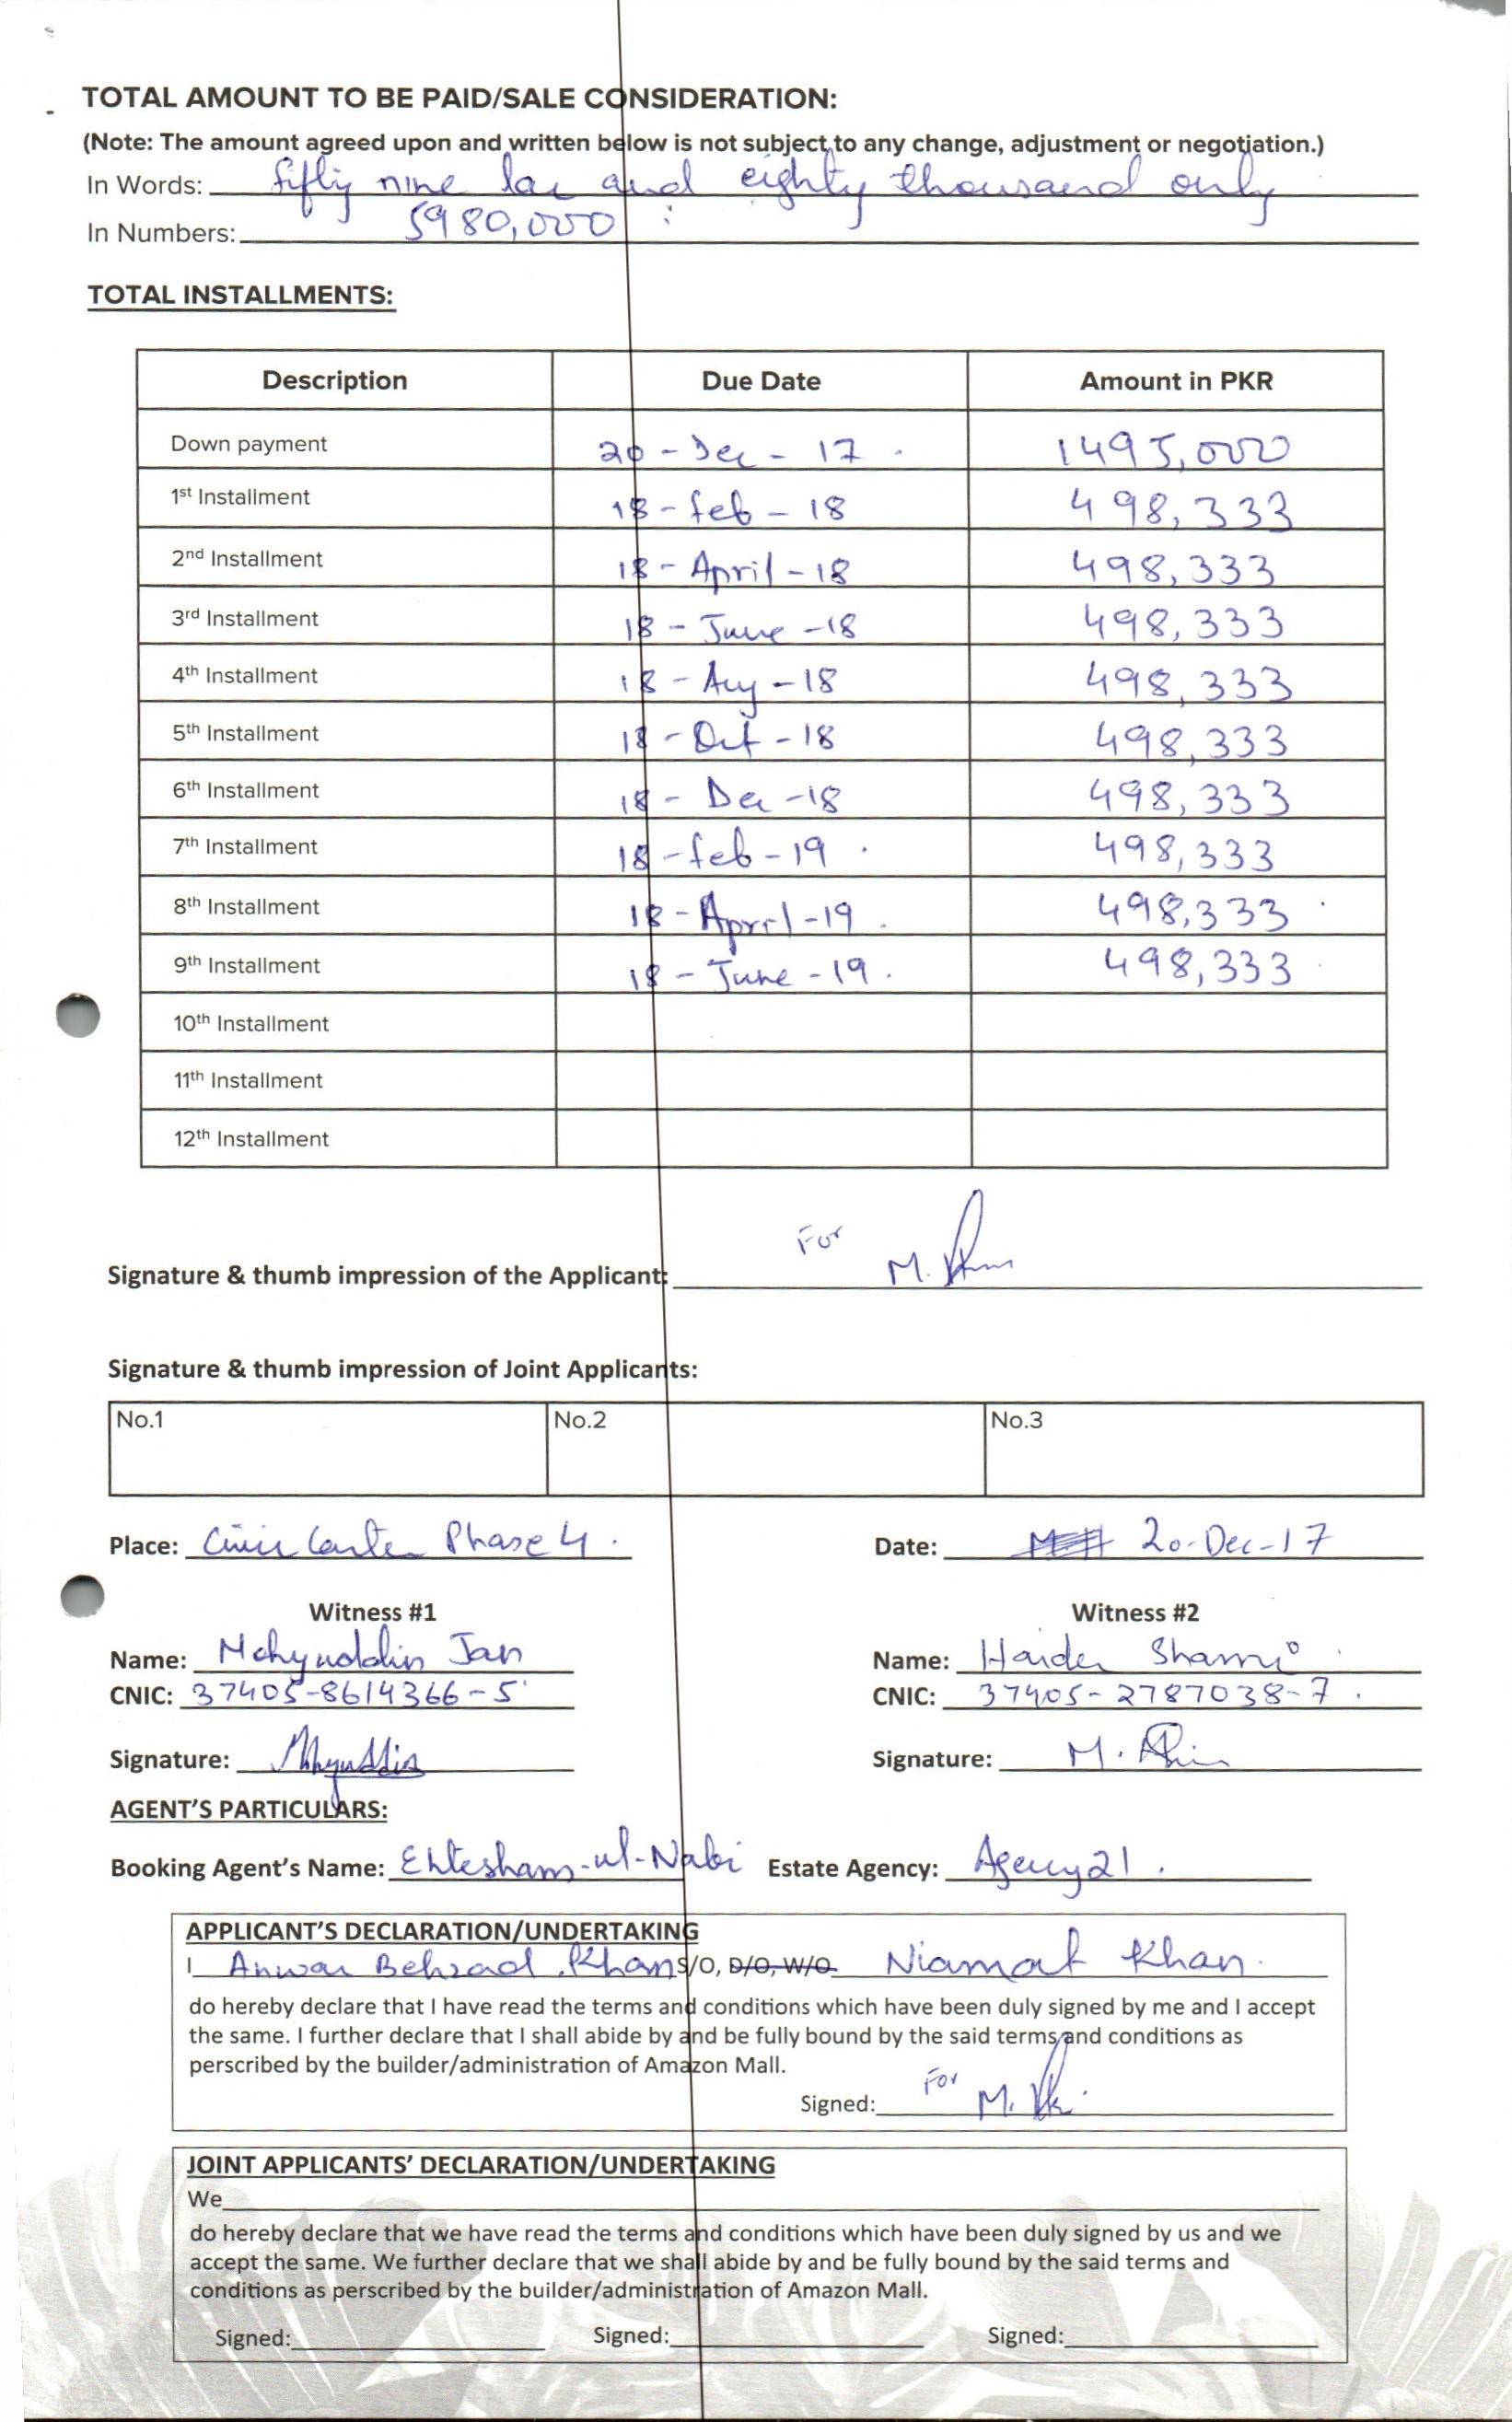 TOTAL AMOUNT TO BE PAID/SALE CONSIDERATION:
(Note: The amount agreed upon and written below is not subject to any change, adjustment or negotiation.)
In Words: fifty nine lac and eighty thousand only
In Numbers: 5980,000
TOTAL INSTALLMENTS:
Description Due Date Amount in PKR
Down payment 20-Dec-17 1495,000
1st Installment 18-feb-18 498,333
2nd Installment 18-April-18 498,333
3rd Installment 18-June-18 498,333
4th Installment 18-Aug-18 498,333
5th Installment 18-Oct-18 498,333
6th Installment 18-Dec-18 498,333
7th Installment 18-feb-19 498,333
8th Installment 18-April-19 498,333
9th Installment 18-June-19 498,333
10th Installment
11th Installment
12th Installment
Signature & thumb impression of the Applicant: For M.
Signature & thumb impression of Joint Applicants:
No.1 No.2 No.3
Place: Civic Center Phase 4. Date: 20-Dec-17
Witness #1 Witness #2
Name: Mohyuddin Jan Name: Haider Shami
CNIC: 37405-8614366-5 CNIC: 37405-2787038-7
Signature: Mohyuddin Signature: M.
AGENT'S PARTICULARS:
Booking Agent's Name: Ehtesham-ul-Nabi Estate Agency: Agency21.
APPLICANT'S DECLARATION/UNDERTAKING
I Anwar Behzad Khan S/O, D/O, W/O Niamat Khan
do hereby declare that I have read the terms and conditions which have been duly signed by me and I accept
the same. I further declare that I shall abide by and be fully bound by the said terms and conditions as
perscribed by the builder/administration of Amazon Mall.
Signed: For M.
JOINT APPLICANTS' DECLARATION/UNDERTAKING
We
do hereby declare that we have read the terms and conditions which have been duly signed by us and we
accept the same. We further declare that we shall abide by and be fully bound by the said terms and
conditions as perscribed by the builder/administration of Amazon Mall.
Signed: Signed: Signed: